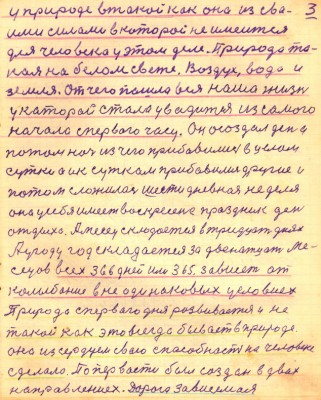 у природе в такой как она из сва- 3
ими силами в которой не имеится
для человека у этом деле. Природа та-
кая на белом свете. Воздух, вода и
земля. От чего пошла вся наша жизн
у каторой стала увидится из самого
начала с первого часу. Он осоздал ден а
потом ноч из чего прибавили в целом
сутки а к суткам прибавили другие и
потом сложилас шести дневная неделя
она у себя имеет воскресене праздник ден
отдиха. А месец склодается в тридцат днях
А у году год складается за двенатцат ме-
сецов всех 366 дней или 365. зависет от
колибание в не одинаковых условиех
Природа с первого дня розвивается и не
такой как это всегда бывает в природе.
она из сердцем сваго способность на человике
сделало. По первасти был создан в двах
направлениех. Дорога зависемая